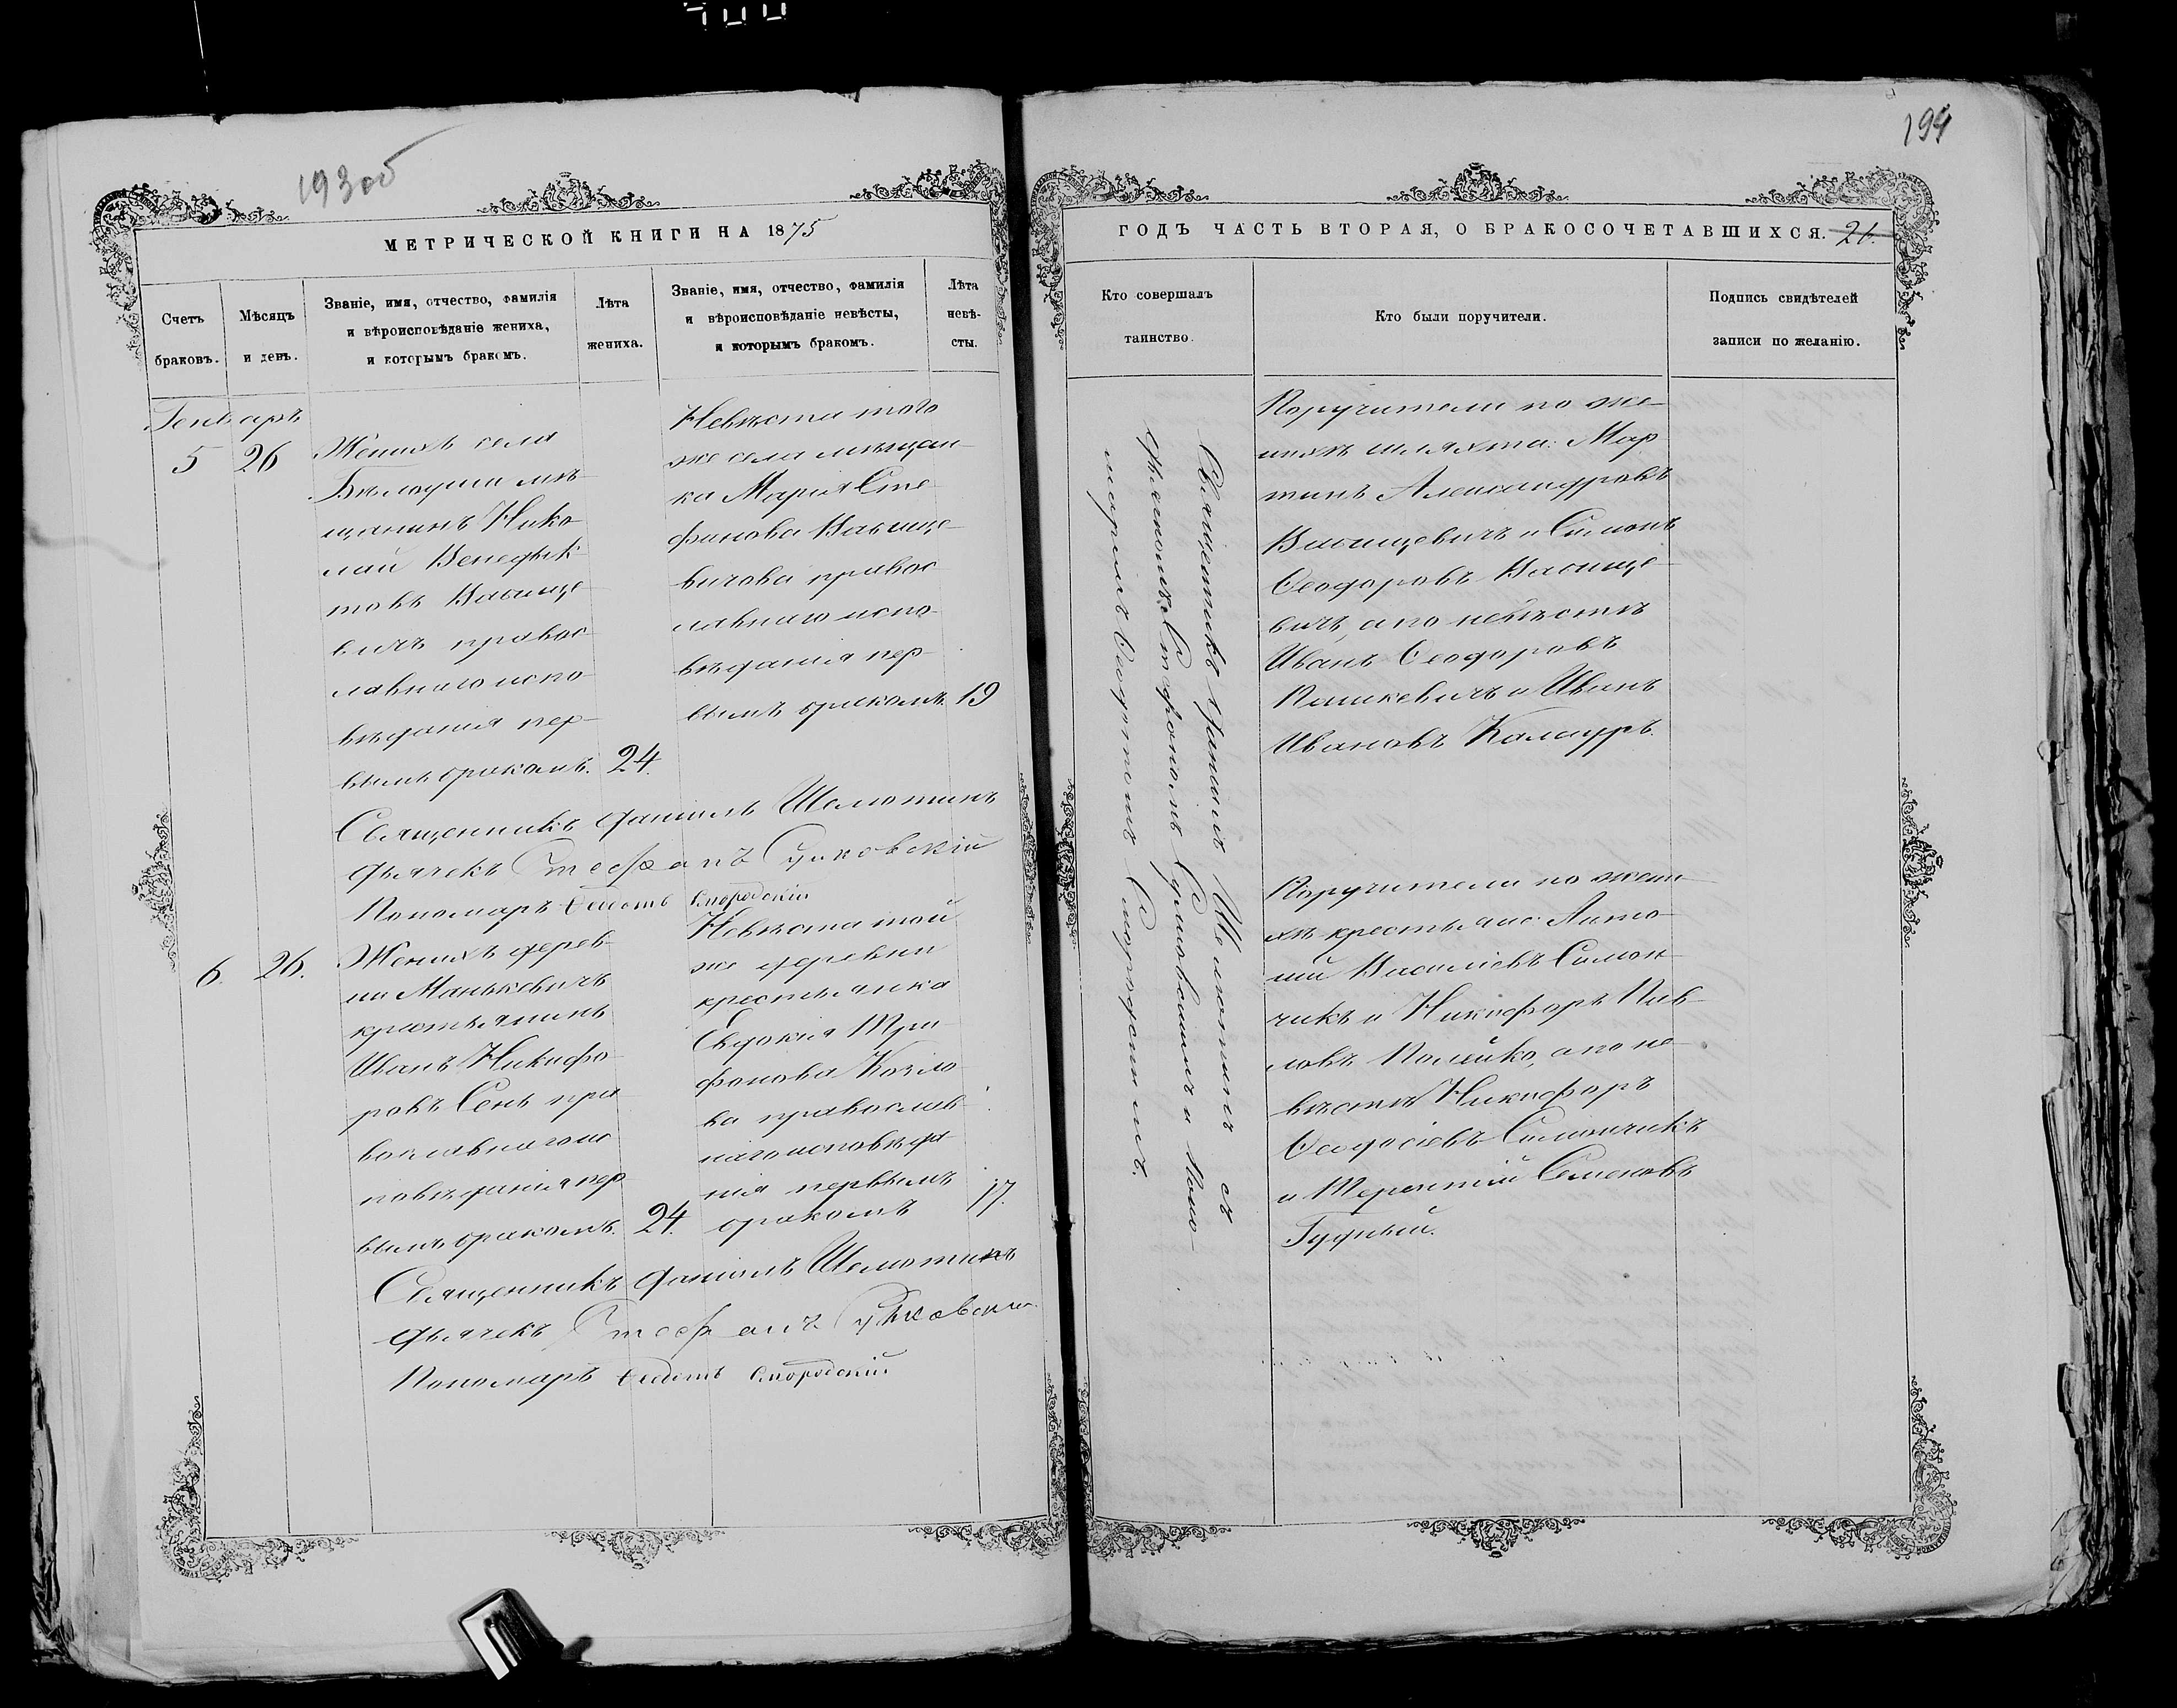 193об
МЕТРИЧЕСКОЙ КНИГИ НА 1875
Счетъ браковъ.
Мѣсяцъ и день.
Званіе, имя, отчество, фамилія
и вѣроисповѣданіе жениха,
и которымъ бракомъ.
Лѣта
жениха.
Званіе, имя, отчество, фамилія
и вѣроисповѣданіе невѣсты,
и которымъ бракомъ.
Лѣта
невѣ-
сты.
Генварь
5 26
Женихъ села
Бѣлоуши мѣ-
щанинъ Нико-
лай Венедык-
товъ Васище-
вичъ правос-
лавнаго испо-
вѣданія пер-
вымъ бракомъ. 24.
Невѣста того
же села мѣщан-
ка Марія Сте-
фанова Васище-
вичова правос-
лавнаго испо-
вѣданія пер-
вымъ бракомъ. 19
Священникъ Даніилъ Шеметилъ
Дьячекъ Стефанъ
Пономарь Феодотъ Смородскій
6. 26.
Женихъ дерев-
ни Манькевичъ
крестьянинъ
Иванъ Никифо-
ровъ Сень пра-
вославнаго ис-
повѣданія пер-
вымъ бракомъ. 24.
Невѣста той
же деревни
крестьянка
Евдокія Три-
фонова Козло-
ва православ-
наго исповѣда-
нія первымъ
бракомъ 17.
Священникъ Даніилъ
Дьячекъ Стефанъ
Пономарь Феодотъ Смородскій
194
ГОДЪ ЧАСТЬ ВТОРАЯ, О БРАКОСОЧЕТАВШИХСЯ. 21.
Кто совершалъ
таинство.
Кто были поручители.
Подпись свидѣтелей
записи по желанію.
Священникъ Даніилъ съ
дьячкомъ Стефаномъ и поно-
маремъ Ѳеодотомъ Смородскимъ.
Поручители по же-
нихѣ шляхта: Мар-
тинъ Александровъ
Васищевичъ и Симонъ
Ѳеодоровъ Васище-
вичъ, а по невѣстѣ
Иванъ Ѳеодоровъ
Пашкевичъ и Иванъ
Ивановъ Колауръ.
Поручители по жени-
хѣ крестьяне: Анто-
ній Василіевъ Симон-
чикъ и Никифоръ Пав-
ловъ Полейко, а по не-
вѣстѣ Никифоръ
Ѳеодосіевъ Симончикъ
и Терентій Семеновъ
Гудный.